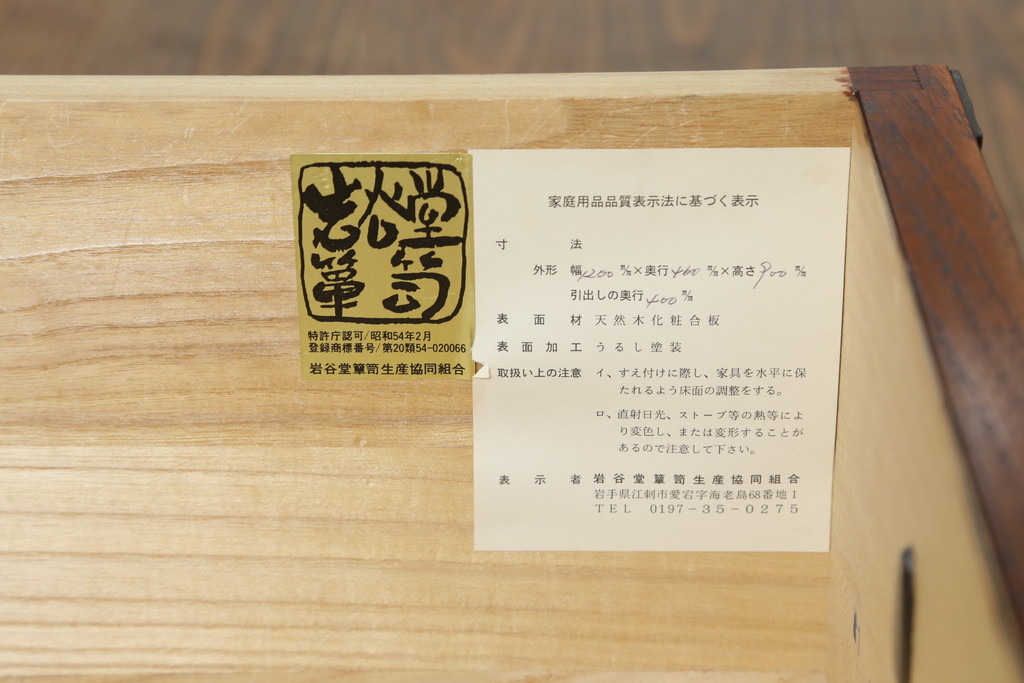 岩谷堂
簞笥
特許庁認可/昭和54年2月
登録商標番号/第20類54-020066
岩谷堂簞笥生産協同組合
家庭用品品質表示法に基づく表示
寸法
外形 幅1200㎜×奥行460㎜×高さ900㎜
引出しの奥行400㎜
表面材 天然木化粧合板
表面加工 うるし塗装
取扱い上の注意 イ、すえ付けに際し、家具を水平に保
たれるよう床面の調整をする。
ロ、直射日光、ストーブ等の熱等によ
り変色し、または変形することが
あるので注意して下さい。
表示者 岩谷堂簞笥生産協同組合
岩手県江刺市愛宕字海老島68番地1
TEL 0197-35-0275